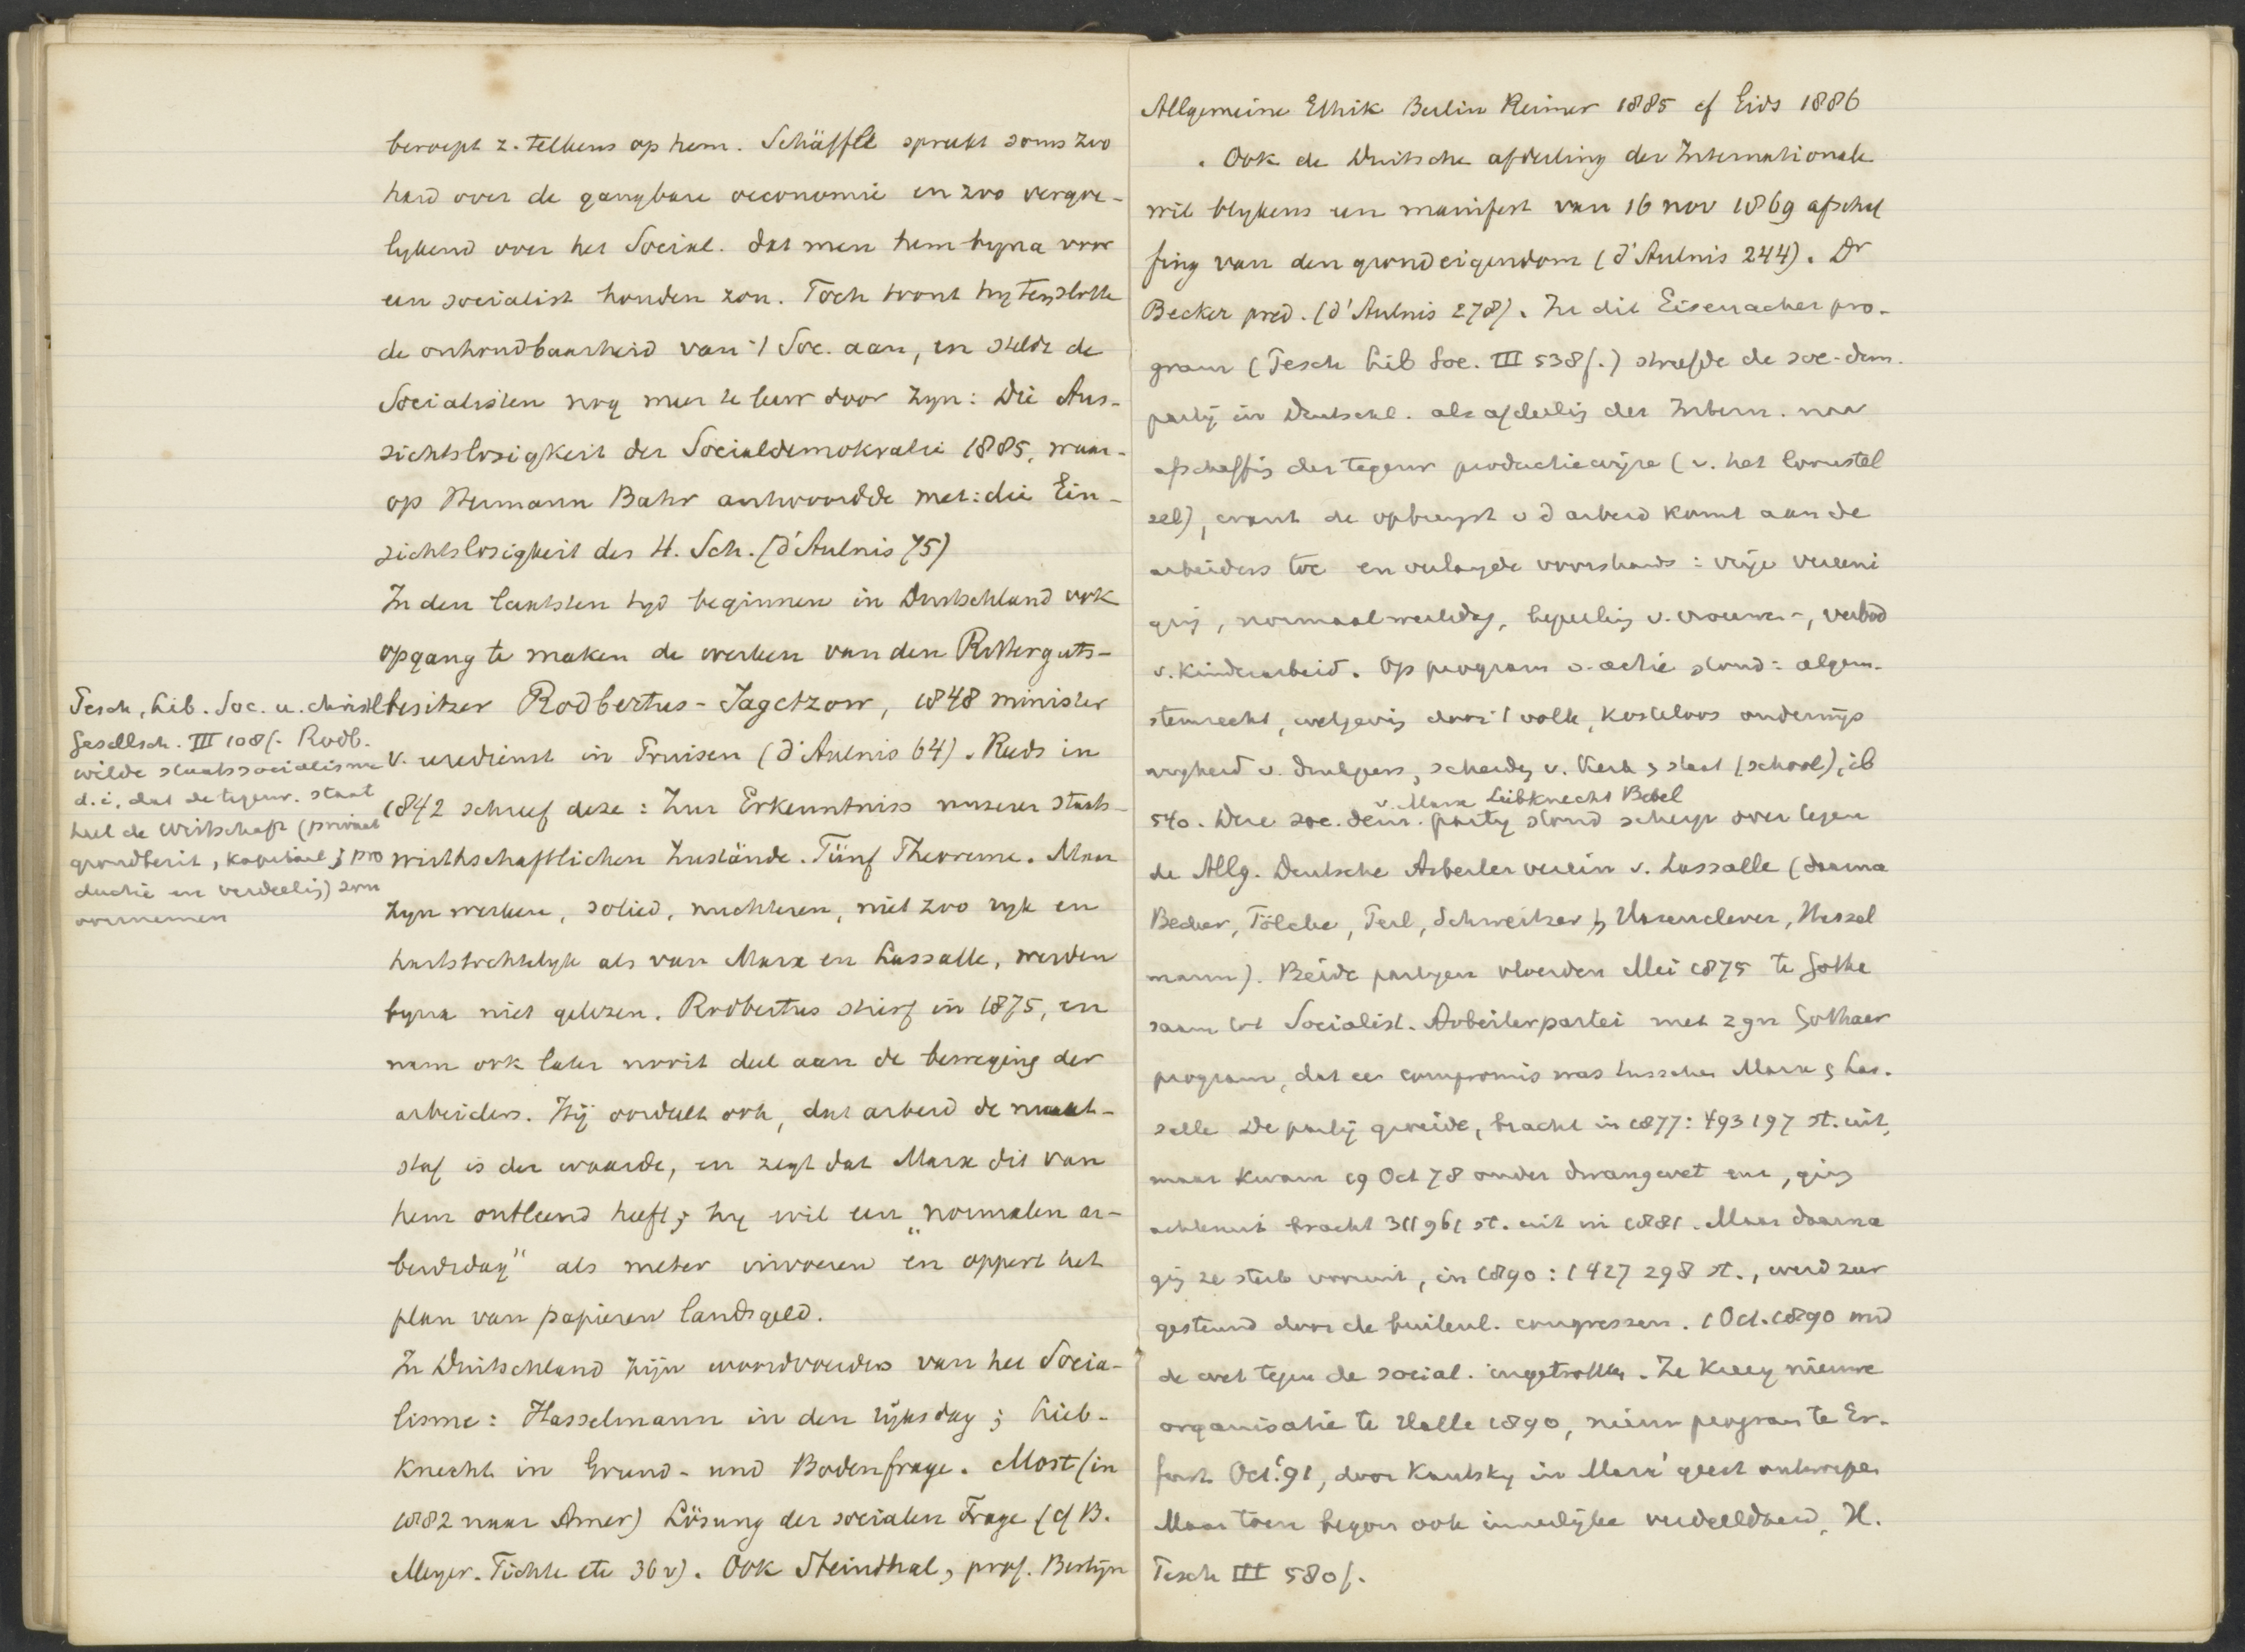 beroept z. telkens op hem. Schäffle spreekt soms zoo
hard over de gangbare oeconomie en zoo vergoe-
lykend over het Social. dat men hem byna voor
een socialist houden zou. Toch toont hy tenslotte
de onhoudbaarheid van 't Soc. aan, en stelde de
Socialisten nog meer te leur door zyn: Die Aus-
sichtslosigkeit der Socialdemokratie 1885, waar-
op Hermann Bahr antwoordde met: die Ein-
sichtslosigkeit des H. Sch. (d'Aulnis 75)
In den laatsten tyd beginnen in Duitschland ook
opgang te maken de werken van den Ritterguts-
besitzer Rodbertus-Jagetzow, 1848 minister
v. eredienst in Pruisen (d'Aulnis 64). Reeds in
1842 schreef deze: Zur Erkenntniss unserer staats-
wirthschaftlichen Zustände. Fünf Theoreme. Maar
zyn werken, solied, nuchteren, niet zoo ryk en
hartstochtelyk als van Marx en Lassalle, werden
byna niet gelezen. Rodbertus stierf in 1875, en
nam ook later nooit deel aan de beweging der
arbeiders. Hij oordeelt ook, dat arbeid de maat-
staf is der waarde, en zegt dat Marx dit van
hem ontleend heeft; hy wil een „normalen ar-
beidsdag" als meter invoeren en oppert het
plan van papieren landsgeld.
In Duitschland zijn woordvoerders van het Socia-
lisme: Hasselmann in den rijksdag; Lieb-
knecht in Grund- und Bodenfrage. Most (in
1882 naar Amer) Lösung der socialen Frage (cf B.
Meyer. Fichte etc 36 v). Ook Steinthal, prof. Berlijn
Tesch, Lib. Soc. u. christl
Gesellsch. III 108f. Rodb.
wilde staatssocialisme
d.i, dat de tegenw. staat
heel de Wirtschaft (privaat
grondbezit, kapitaal; pro
ductie en verdeelig) zou
overnemen
Allgemeine Ethik Berlin Reimer 1885 cf Gids 1886
. Ook de Duitsche afdeeling der Internationale
wil blykens een manifest van 16 nov 1869 afschaf
fing van den grondeigendom (d'Aulnis 244). Dr
Becker pred. (d'Aulnis 278). In dit Eisenacher pro-
gram (Tesch Lib Soc. III 538f.) streefde de soc-dem.
partij in Deutschl. als afdeelig der Intern. naar
afschaffig der tegenw productiewijze (v. het loonstel
sel), want de opbrengst v d arbeid komt aan de
arbeiders toe en verlangde voorshands: vrije vereeni
gig, normaalwerkdag, beperkig v. vrouwen-, verbod
v. kinderarbeid. Op program v. actie stond: algem.
stemrecht, wetgevig door 't volk, kosteloos onderwijs
vryheid v. drukpers, scheidg v. Kerk & staat (school), ib
v. Marx Leibknecht Bebel
540. Deze soc. dem. party stond scherp over tegen
de Allg. Deutsche Arbeiter verein v. Lassalle (daarna
Becker, Tölcke, Perl, Schweitzer, Hasenclever, Hassel
mann). Beide partyen vloeiden Mei 1875 te Gotha
saam tot Socialist. Arbeiterpartei met zgn Gothaer
program, dat een compromis was tusschen Marx & Las-
salle De partij groeide, bracht in 1877: 493197 st. uit,
maar kwam 19 Oct 78 onder dwangwet enz, ging
achteruit bracht 311961 st. uit in 1881. Maar daarna
gig ze sterk vooruit, in 1890: 1427298 st., werd zeer
gesteund door de buitenl. congressen. 1 Oct. 1890 wrd
de wet tegen de social. ingetrokken. Ze kreeg nieuwe
organisatie te Halle 1890, nieuw program te Er-
furt Oct. '91, door Kautsky in Marx' geest ontworpen
Maar toen begon ook innerlijke verdeeldheid, H.
Tesch III 580f.